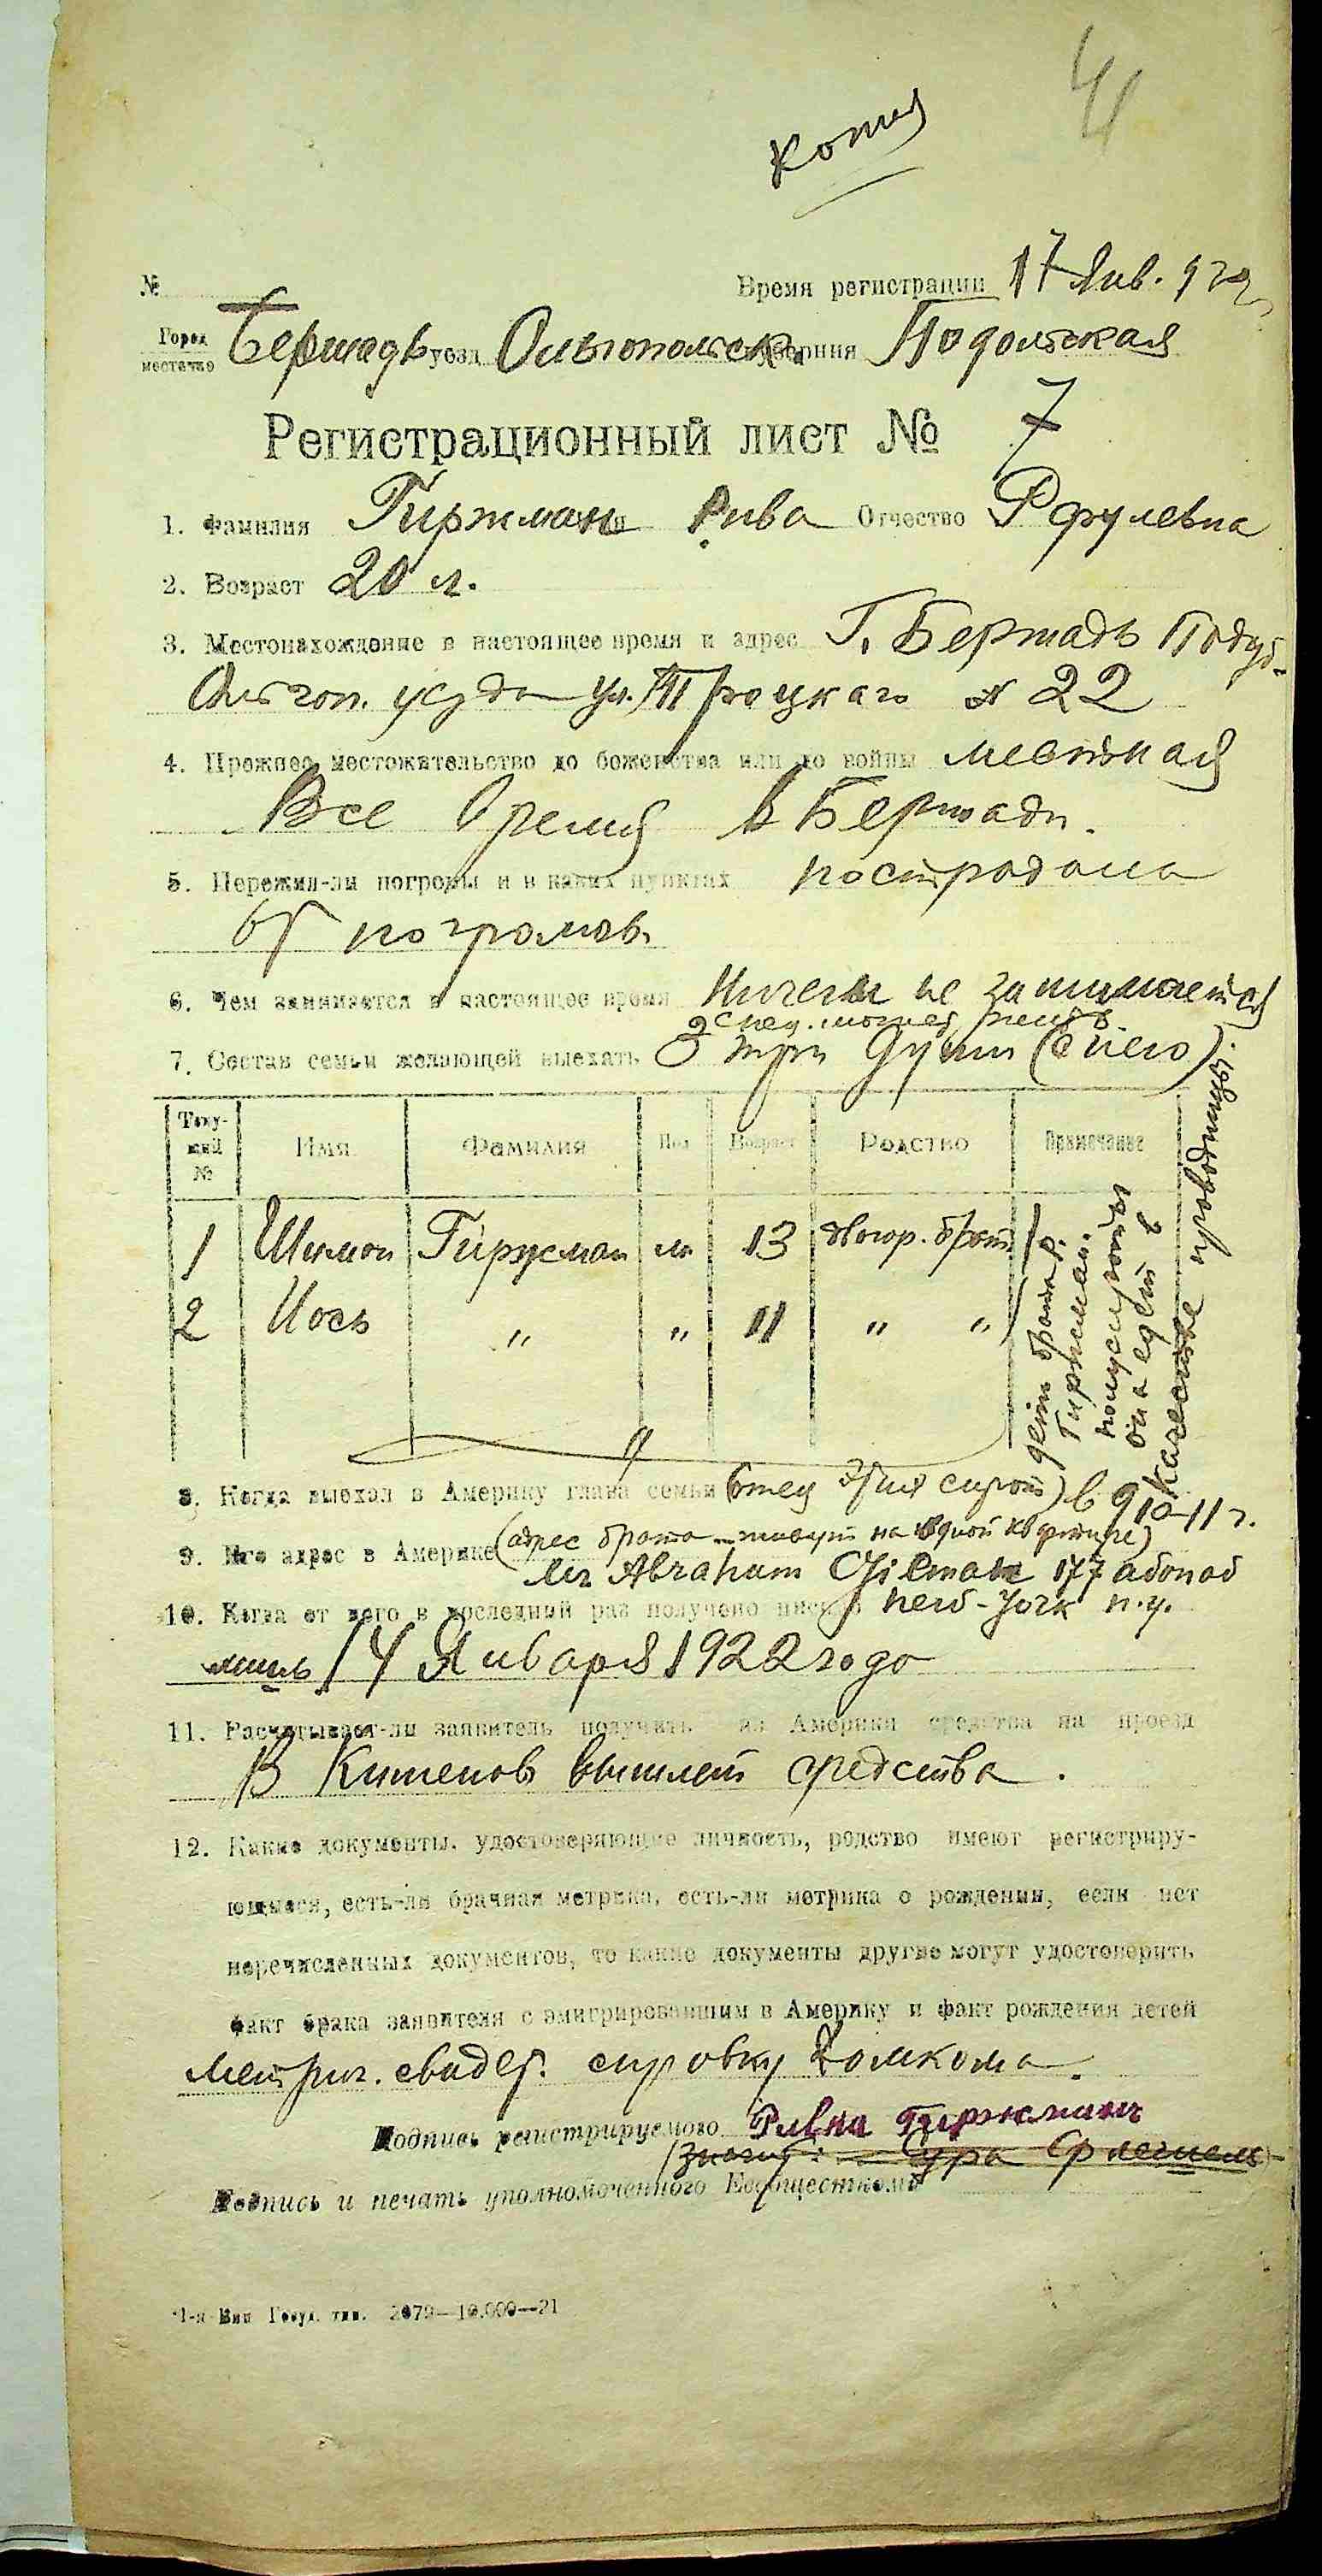 41
копия
№
Время регистрации 17 Янв. 922
Город местечко Бершадь уезд Ольгопольск. губерния Подольская
Регистрационный лист № 7
1. Фамилия Гиржман Рива Отчество Рфулевна
2. Возраст 20 л.
3. Местонахождение в настоящее время и адрес Г. Бершадь Под губ.
Ольгоп. уезда ул. Троцкаго № 22
4. Прежнее местожительство до беженства или до войны местная
Все время в Бершади.
5. Пережил-ли погромы и в каких пунктах пострадала
от погромов.
6. Чем занимается в настоящее время Ничем не занимается
7. Состав семьи желающей выехать 3 три души (с нею)
Теку-щий № Имя Фамилия Пол Возраст Родство Примечание
1 Шимон Гиржман м 13 двоюр. брат
2 Иось " " 11 " "
дети брата Р.
Гиржман.
полусироты
она едет в
качестве проводницы.
8. Когда выехал в Америку глава семьи (отец этих сирот) в 910-11 г.
9. Его адрес в Америке (адрес брата живут на одной квартире)
Mr Abraham Gilman 177
10. Когда от него в последний раз получено письмо New-York n.y.
лишь 14 Января 1922 года
11. Расчитывает-ли заявитель получить из Америки средства на проезд
В Кишенов вышлет средства.
12. Какие документы, удостоверяющие личность, родство имеют регистриру-
ющиеся, есть-ли брачная метрика, есть-ли метрика о рождении, если нет
перечисленных документов, то какие документы другие могут удостоверить
факт брака заявителя с эмигрировавшим в Америку и факт рождения детей
Метрич. свидет. справку Домкома.
Подпись регистрируемого Ривка Гиржман
Сура
Подпись и печать уполномоченного Евобщесткома
1-я Вин Госуд. тип. 2079—10.000—21